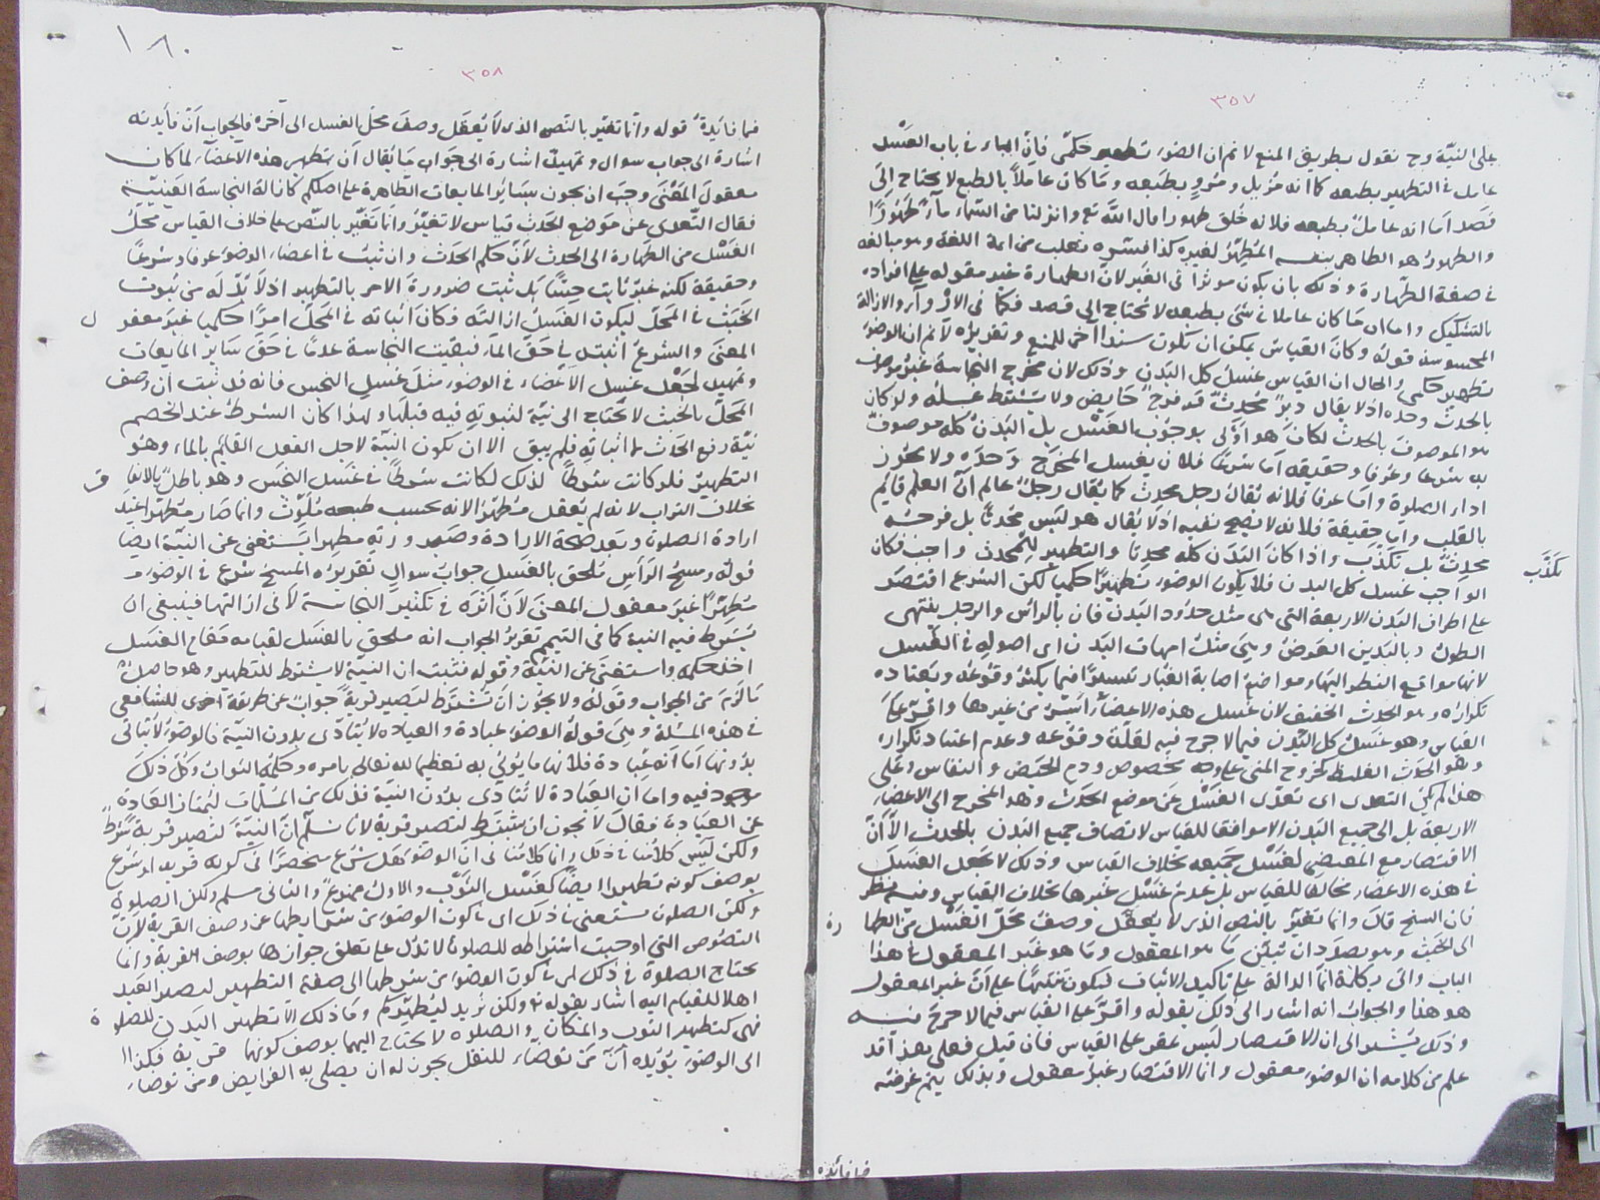 ٣٥٧
على النيّة وح نقول بطريق المنع لا نم ان الضوء تطهير حكمّى فانّ الماء فى باب الغَسْل
عامل فى التطهير بطبعه كما انه مزيل ومُروٍ بطبعه وما كان عاملاً بالطبع لا يحتاج الى
قصد اما انه عاملٌ بطبعه فلانه خُلق طهورا قال الله تع وانزلنا من السّماء ماءً طهُورًا
والطهورُ هو الطاهر بنفسه المُطهّرُ لغيره كذا فسّره ثعلب من ائمة اللغة وهو مبالغة
فى صفة الطّهارة وذلك بان يكون موثرا فى الغير لانّ الطهارة غير مقوله على افراده
بالتشكيك واما ان ما كان عاملا فى شئ بطبعه لا يحتاج الى قصد فكما فى الارواء والازالة
المحسوسة قولهُ وكان القياس يمكن ان يكون سندا آخر للمنع وتقديره لا نم ان الوضوء
تطهير حكمى والحال ان القياس غسلُ كل البدن وذلك لان مخرج النجاسة غير موصوف
بالحدث وحده اذ لا يقال دبرٌ مُحدثٌ قد فرجٌ حايض ولا يشترط غسله ولو كان
هو الموصوف بالحدث لكان هو اولى بوجوب الغَسْل بل البَدنُ كله موصوفٌ
به شرعا وعُرفا وحقيقة اما شرعًا فلان بغسل المخرج وَحدَه ولا يجوز
اداء الصلوة واما عرفا فلانه يُقالُ رجل محدث كما يُقال رجلٌ عالم انّ العلم قايم
بالقلب واما حقيقة فلانه لا يصح نفيه اذ لا يقال هو ليس مُحدثًا بل فرجه
محدِثٌ بل يكذَّب واذا كان البدن كله محدِثا والتطهير للمحدث واجب فكان
تكذَّب
الواجب غسل كل البدن فلا يكون الوضوء تطهيرًا حكميا لكن الشرع اقتصَر
على اطراف البَدن الاربعة التى هى مثل حدود البَدن فان بالراس والرجل ينتهى
الطولُ وباليدين العرضُ وهى مثلُ امهات البدن اى اصوله فى الغَسل
لانها مواقع النظر اليها ومواضع اصابة الغبار تيسيرًا فيما يكثر وقُوعُه ويَعتاده
تكراره وهو الحدث الخفيف لان غسل هذه الاعضاء ايسر من غيرها واقرّ على
القياس وهو غَسلُ كل البَدن فيما لا حرج فيه لقلّة وقوعه وعدم اعتياد تكراره
وهو الحَدث الغليظ كخروج المنى على وجه مخصوص ودم الحَيض والنفاس وعلى
هذا لم يكن التعدى اى تعدّى الغَسْل عن موضع الحدَث وهو المخرج الى الاعضاء
الاربعة بل الى جميع البدن الا موافقا للقياس لاتصاف جميع البدن بالحدث الاّ انّ
الاقتصار مع المقتضى لغَسْل جميعه بخلاف القياس وذلك لا يجعل الغسل
فى هذه الاعضاء مخالفا للقياس بل عدم غَسْل غيرها بخلاف القياس وفيه نظر
فان الشيخ قال وانما تغيّر بالنص الذى لا يُعقل وصفُ محلّ الغَسْل من الطها
رة
الى الخبث وهو بصدد ان تبيّن ما هو المعقول وما هو غير المعقول فى هذا
الباب واتى بكلمة انما الدالة على تاكيد الاثبات فيكون تنبيهًا على انّ غير المعقول
هو هذا والجوابُ انه اشار الى ذلك بقوله واقرّ على القياس فيما لا حرج فيه
وذلك يُشير الى ان الاقتصار ليس بمقر على القياس فان قيل فعلى هذا قد
علم من كلامه ان الوضوء معقول وانما الاقتصار غير معقول وبذلك يتم غرضه
فما فائدة

١٨٠
٣٥٨
فما فائدةُ قوله وانما تغير بالنص الذى لا يُعقل وصفَ محل الغسل الى آخره فالجواب انّ فايدته
اشارة الى جواب سوال وتمهيدٌ اشارة الى جواب ما يُقال ان تطهير هذه الاعضاء لما كان
معقول المعْنَى وجبَ ان يكون سائر المايعات الطاهرة على اصلكم كازالة النجاسة العَينيّة
فقال التّعدى عن موضع الحَدث قياس لا تغيّرٌ وانما تغيّر بالنّص على خلاف القياس محلُّ
الغَسْل من الطهارة الى الحدث لانّ حكم الحَدث وان ثبت فى اعضاء الوضوء عرفا وشرعًا
وحقيقة لكنه غير ثابت حِسًّا بل ثبت ضرورة الامر بالتطهير اذ لا بُدّ لَه من ثُبوت
الخبَث فى المحلّ ليكون الغسلُ ازالته فكان اثباته فى المحَلّ امرًا حكميا غيرَ معقو
ل
المعنى والشرعُ اثبته فى حَقّ الماء فبقيت النجاسة عدمًا فى حَقّ ساير المايعات
وتمهيدٍ لجعْل غسل الاعضاء فى الوضوء مثلَ غسل النجس فانه قد ثبت ان وصف
المحَلّ بالخبث لا يحتاج الى نيّة لثبوته فيه قبلها ولهذا كان الشرطُ عند الخصم
نيّة رفع الحَدث لا اثباته فلم يبق الا ان يكون النيّة لاجل الفعل القايم بالماء وهو
التطهير فلو كانت شرطًا لذلك لكانت شرطًا فى غَسل النجَس وهو باطلٌ بالاتفا
ق
بخلاف التراب لانه لم يعقل مُطهّرًا لانه بحسب طبعه مُلوّث وانما صار مُطهّرًا عند
ارادة الصلوة وبعد صحة الارادة وصَيرورته مطهرا يَستغنى عن النيّة ايضا
قولُه ومسحُ الرّاس مُلحق بالغَسل جوابُ سوالٍ تقريرُه المسحُ شرع فى الوضوء
مُطهِّرًا غيرَ معقول المعنَى لانّ اثرَه فى تكثير النجاسة لا فى ازالتها فينبغى ان
يُشترط فيه النية كما فى التيمم تقريرُ الجواب انه ملحق بالغَسل لقيامه مقام الغسل
اخذ حكمه واستغنى عن النيّة وقوله فثبت ان النيّة لا تشترط للتطهير وهو حاصلُ
ما لزم من الجواب وقَوله ولا يجُوز ان تُشترط ليَصيرَ قربةً جوابٌ عن طريقة اخرى للشافعى
فى هذه المسئلة وهى قولهُ الوضوءُ عبادة والعبادة لا يُتأدّى بدون النيّة فالوضوءُ لا يُتأتى
بدُونها امّا انّه عِبادة فلانها ما يُوتى به تعظيما لله تعالى بامره وحكمُه الثوابُ وكلّ ذلك
موجود فيه واما ان العبادة لا تتأدى بدُون النيّة فذلك من المسَلّمات لتمتاز العادة
عن العبادة فقال لا يجوز ان تشترط لتصير قربة لانا نسلّم انّ النيّةَ لتصير قربة شرط
ولكن ليس كلامُنا فى ذلك وانما كلامُنا فى انّ الوضوء هَل شُرع منحصرًا فى كونه قربة او شُرع
بوصف كونه تطهيرا ايضًا كغَسْل الثوْب والاول ممنوع والثانى مسلم ولكن الصلوة
ولكن الصلوة مستغنى فى ذلك اى فى كون الوضوء من شرايطها عن وصف القربة لانّ
النصُوص التى اوجبت اشتراطه للصلوة لا تدلّ على تعلق جوازها بوصف القربة وانما
يحتاج الصلوة فى ذلك اى فى كون الوضوء من شرطها الى صفة التطهير ليصير العبد
اهلا للقيام اليه اشار بقوله تع ولكن يُريد ليُطهّركم وما ذلك الا تطهير البَدن للصلو
ة
فهى كتطهير الثوب والمكان والصلوه لا يحتاج اليهما بوصف كونها قربة فكذا
الى الوضوء يُؤيده انّ من توضّاء للنفل يجوز له ان يصلى به الفرايض ومن توضاء